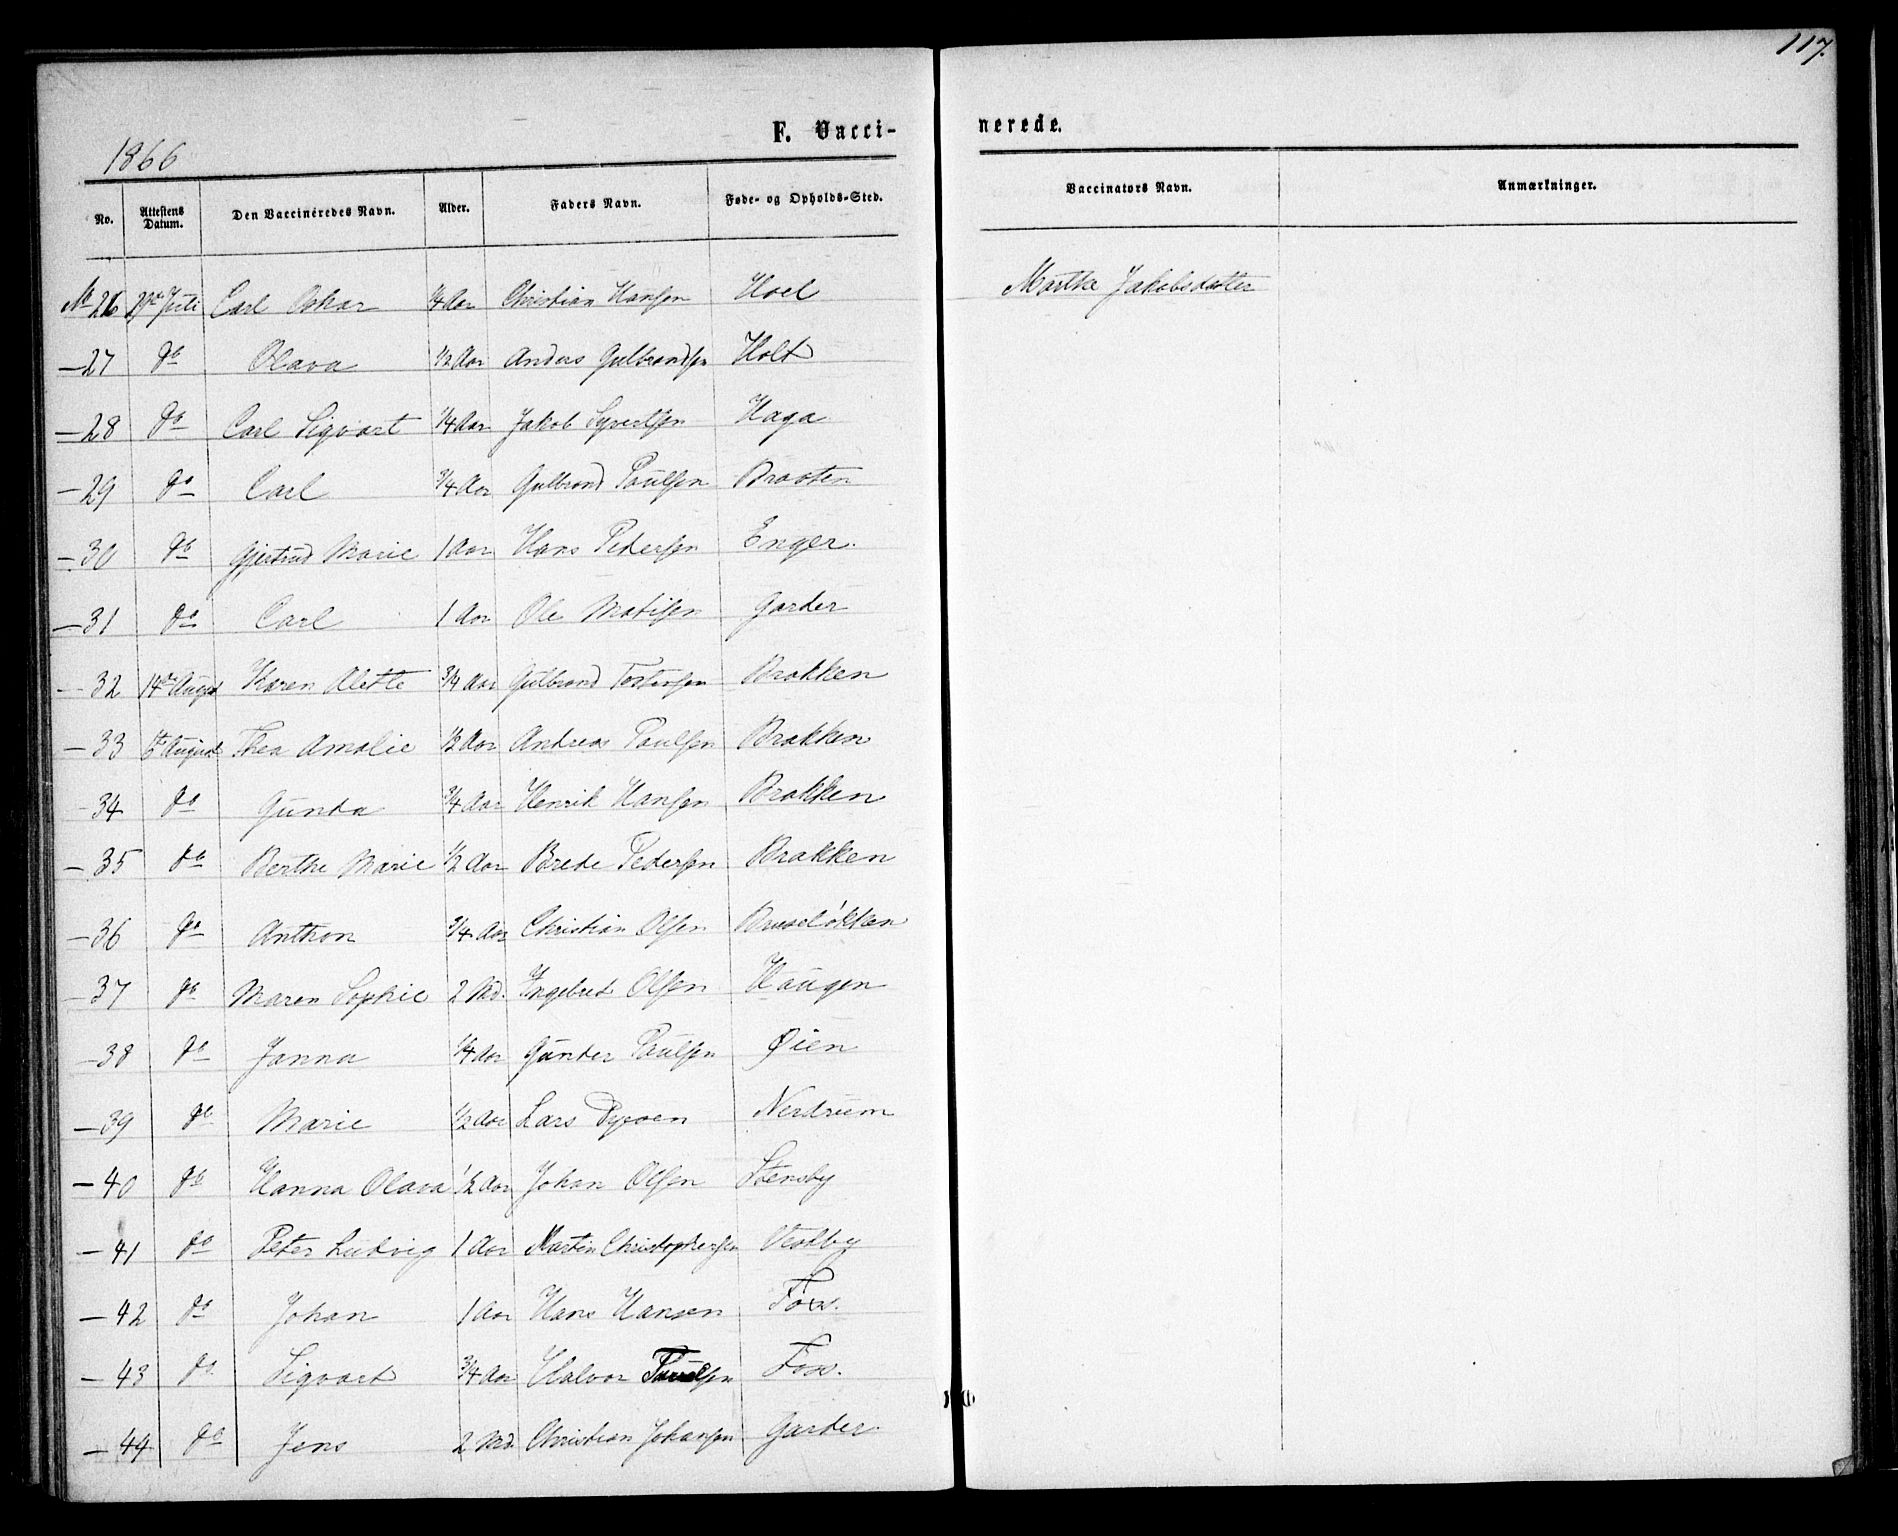 117.
1866
F. Vacci-
nerede.
No. Attestens Datum. Den Vaccineredes Navn. Alder. Faders Navn. Føde- og Opholds-Sted. Vaccinators Navn. Anmærkninger.
No 26 Juli Carl Oskar 1/4 Aar Christian Hansen Hoel Marthe Jakobsdatter
—27 do Olava 1/2 Aar Anders Gulbrandsen Holt
—28 do Carl Sigvart 1/4 Aar Jakob Syvertsen Haga
—29 do Carl 3/4 Aar Gulbrand Paulsen Braaten
—30 do Gjertrud Marie 1 Aar Hans Pedersen Enger.
—31 do Carl 1 Aar Ole Matisen Garder
—32 14de August Karen Alette 3/4 Aar Gulbrand Brakken
—33 August Thea Amalie 1/2 Aar Andreas Paulsen Brakken
—34 do Gunda 3/4 Aar Henrik Hansen Brakken
—35 do Berthe Marie 1/2 Aar Brede Pedersen Brakken
—36 do Anthon 3/4 Aar Christian Olsen Bruseløkken
—37 do Maren Sophie 2 Md. Ingebret Olsen Haugen
—38 do Janna 1/4 Aar Gunder Paulsen Øien
—39 do Marie 1/2 Aar Lars Nerdrum
—40 do Hanna Olava 1/2 Aar Johan Olsen Stensby
—41 do Peter Ludvig 1 Aar Martin Christophersen Vestby
—42 do Johan 1 Aar Hans Hansen Foss.
—43 do Sigvart 3/4 Aar Halvor Foss.
—44 do Jens 2 Md. Christian Johansen Garder